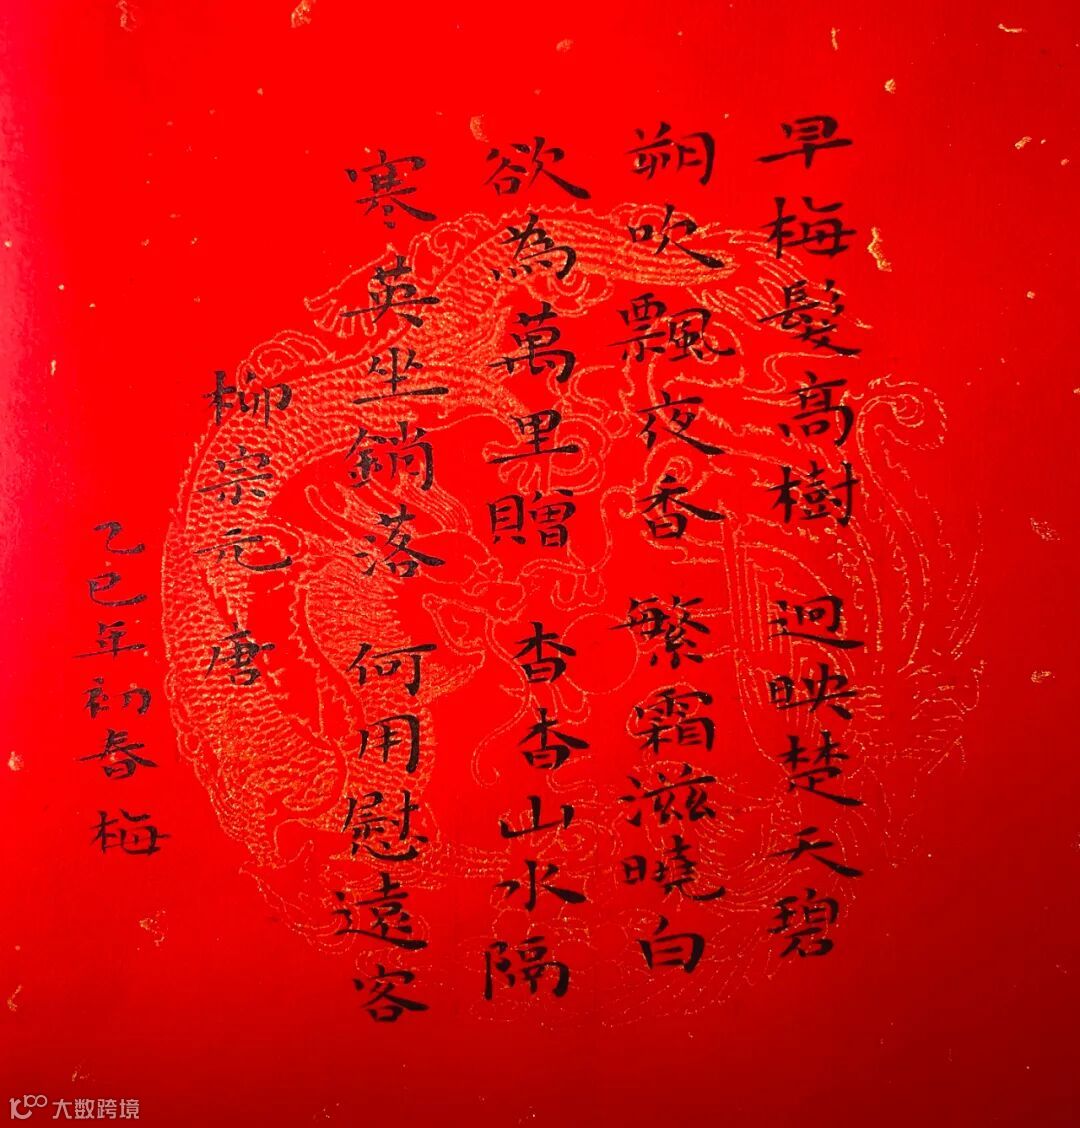 早梅髮高樹 迥映楚天碧
朔吹飄夜香 繁霜滋曉白
欲為萬里贈 杳杳山水隔
寒英坐銷落 何用慰遠客
柳宗元 唐
乙巳年初春 梅
大数跨境